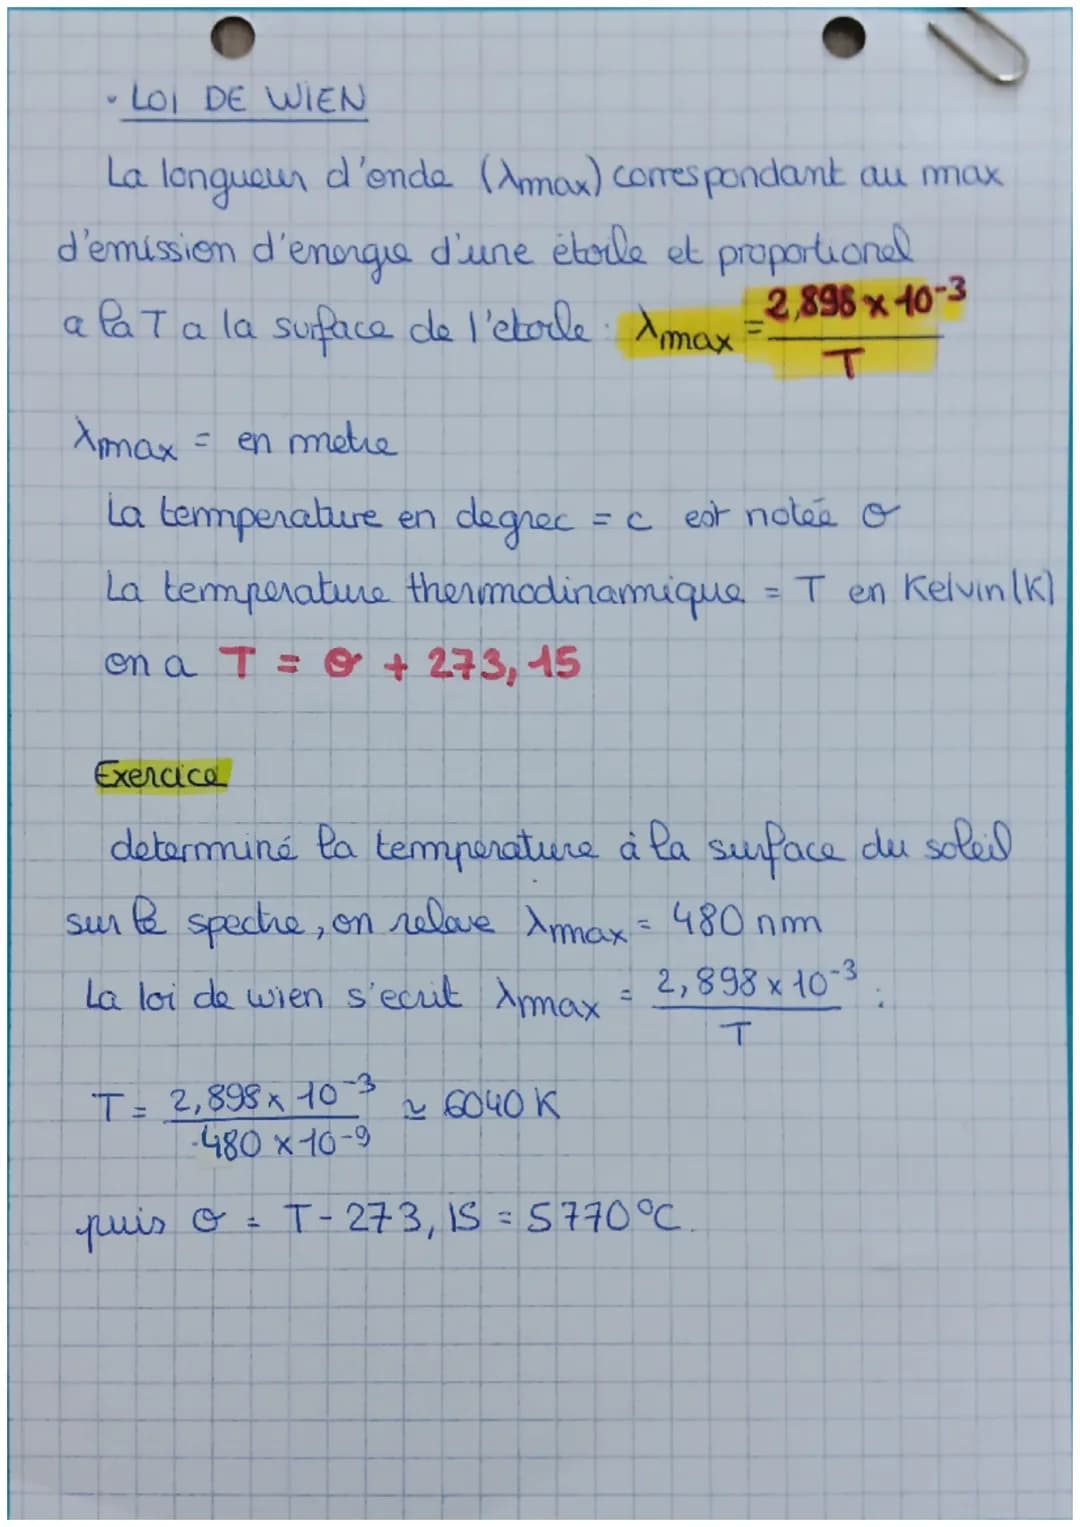 • LOI DE WIEN
La longueur d'onde (λmax) correspondant au max
d'émission d'energie d'une étoile et proportionel
a la T a la surface de l'etoile : λmax = 2,898 x 10⁻³ / T
λmax = en metre
La temperature en degrec = c est notée θ
La temperature thermodinamique = T en Kelvin (K)
on a T = θ + 273,15
Exercice
determiné la temperature à la surface du soleil
sur le spectre, on releve λmax = 480 nm
La loi de wien s'ecrit λmax = 2,898 x 10⁻³ / T :
T = 2,898 x 10⁻³ / 480 x 10⁻⁹ ≃ 6040 K
puis θ = T - 273,15 = 5770°C.